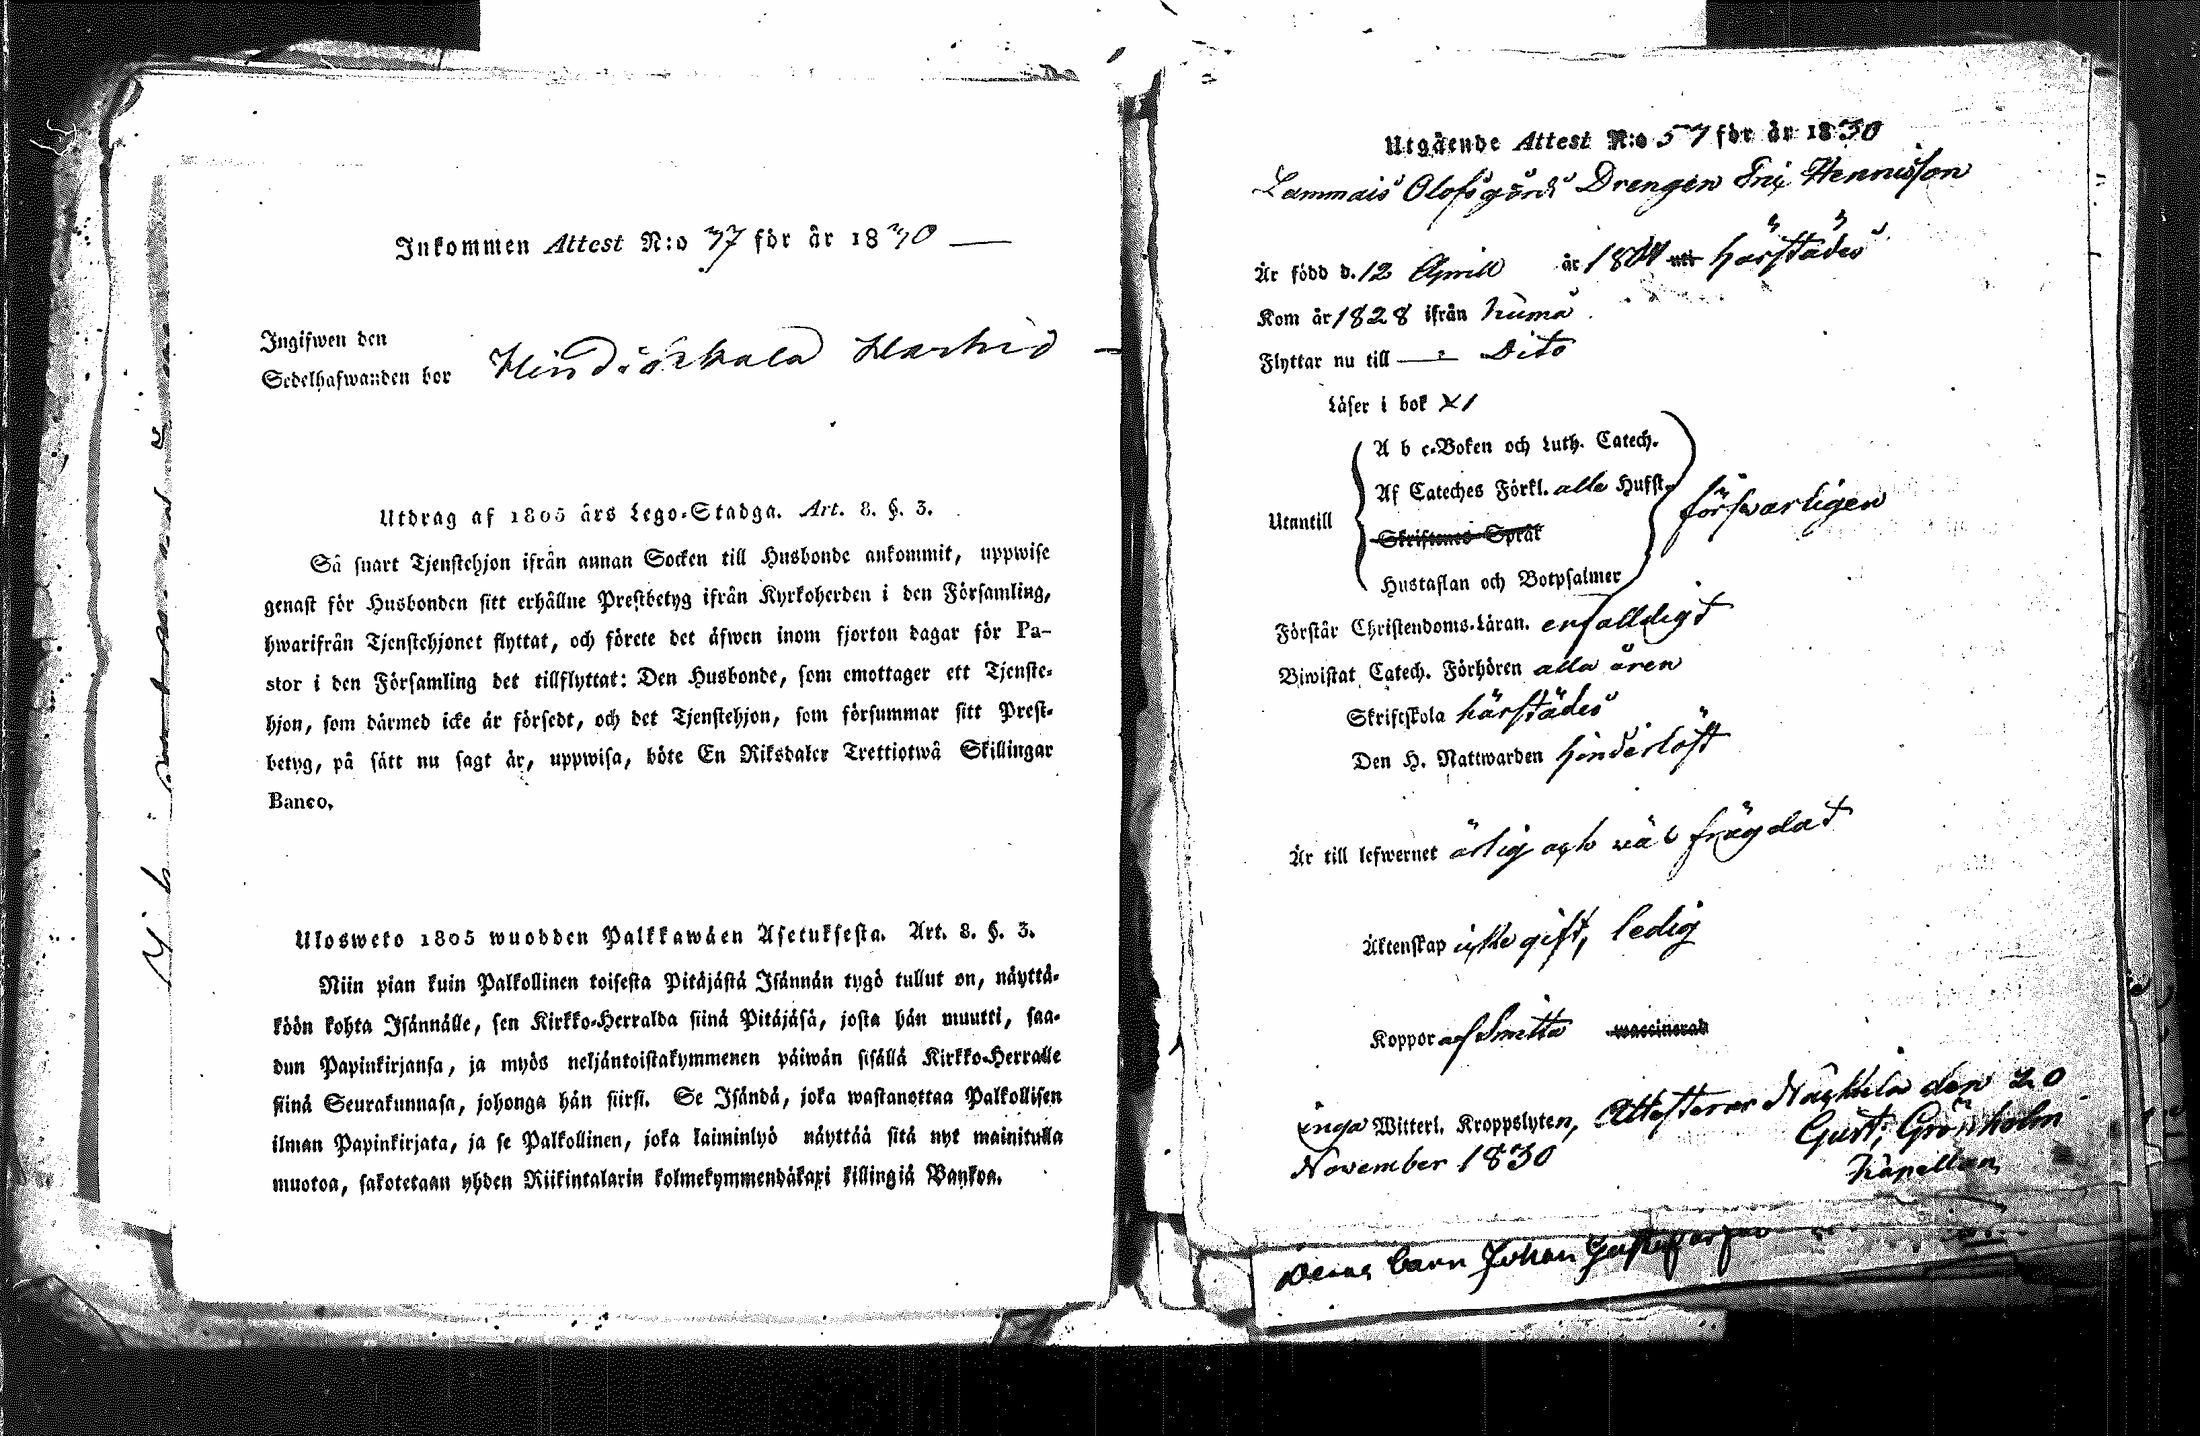 Inkommen Attest N:o 37 för år 1830
Ingifwen den
Sedelhafwanden bor
Utdrag af 1805 års Lego-Stadga. Art. 8. §. 3.
Så snart Tjenstehjon ifrån annan Socken till Husbonde ankommit, uppwise
genast för Husbonden sitt erhållne Prestbetyg ifrån Kyrkoherden i den Församling,
hwarifrån Tjenstehjonet flyttat, och förete det äfwen inom fjorton dagar för Pa-
stor i den Församling det tillflyttat: Den Husbonde, som emottager ett Tjenste-
hjon, som därmed icke är försedt, och det Tjenstehjon, som försummar sitt Prest-
betyg, på sätt nu sagt är, uppwisa, böte En Riksdaler Trettiotwå Skillingar
Banco.
Ulosweto 1805 wuodden Palkkawäen Asetuksesta. Art. 8. §. 3.
Niin pian kuin Palkollinen toisesta Pitäjästä Isännän tygö tullut on, näyttä-
köön kohta Isännälle, sen Kirkko-Herralda siinä Pitäjäsä, josta hän muutti, saa-
dun Papinkirjansa, ja myös neljäntoistakymmenen päiwän sisällä Kirkko-Herralle
siinä Seurakunnasa, johonga hän siirsi. Se Isändä, joka wastanottaa Palkollisen
ilman Papinkirjata, ja se Palkollinen, joka laiminlyö näyttää sitä nyt mainitulla
muotoa, sakotetaan yhden Riikintalarin kolmekymmendäkaxi killingiä Bankoa.
Utgående Attest N:o 57 för år 1830
Lammais Olofsgårds Drengen Hennisson
Är född d. 12 Aprill år härstädes
Kom år 1828 ifrån
Flyttar nu till Dito
Läser i bok
Utantill
A b c-Boken och Luth. Catech.
Af Cateches Förkl. alla Hufst.
Skriftenes Språk
Hustaflan och Botpsalmer
försvarligen
Förstår Christendoms-Läran. enfalldigt
Biwistat Catech. Förhören alla åren
Skriftskola härstädes
Den H. Nattwarden hinderlöst
Är till lefwernet ärlig och väl frägdat
Äktenskap icke gift, ledig
Koppor af Smitta waccinerad
inga Witterl. Kroppslyten, Attesterar Näckkila den 20
November 1830 Gust. Grönholm
Kapellan
barn Johan Gustafsson